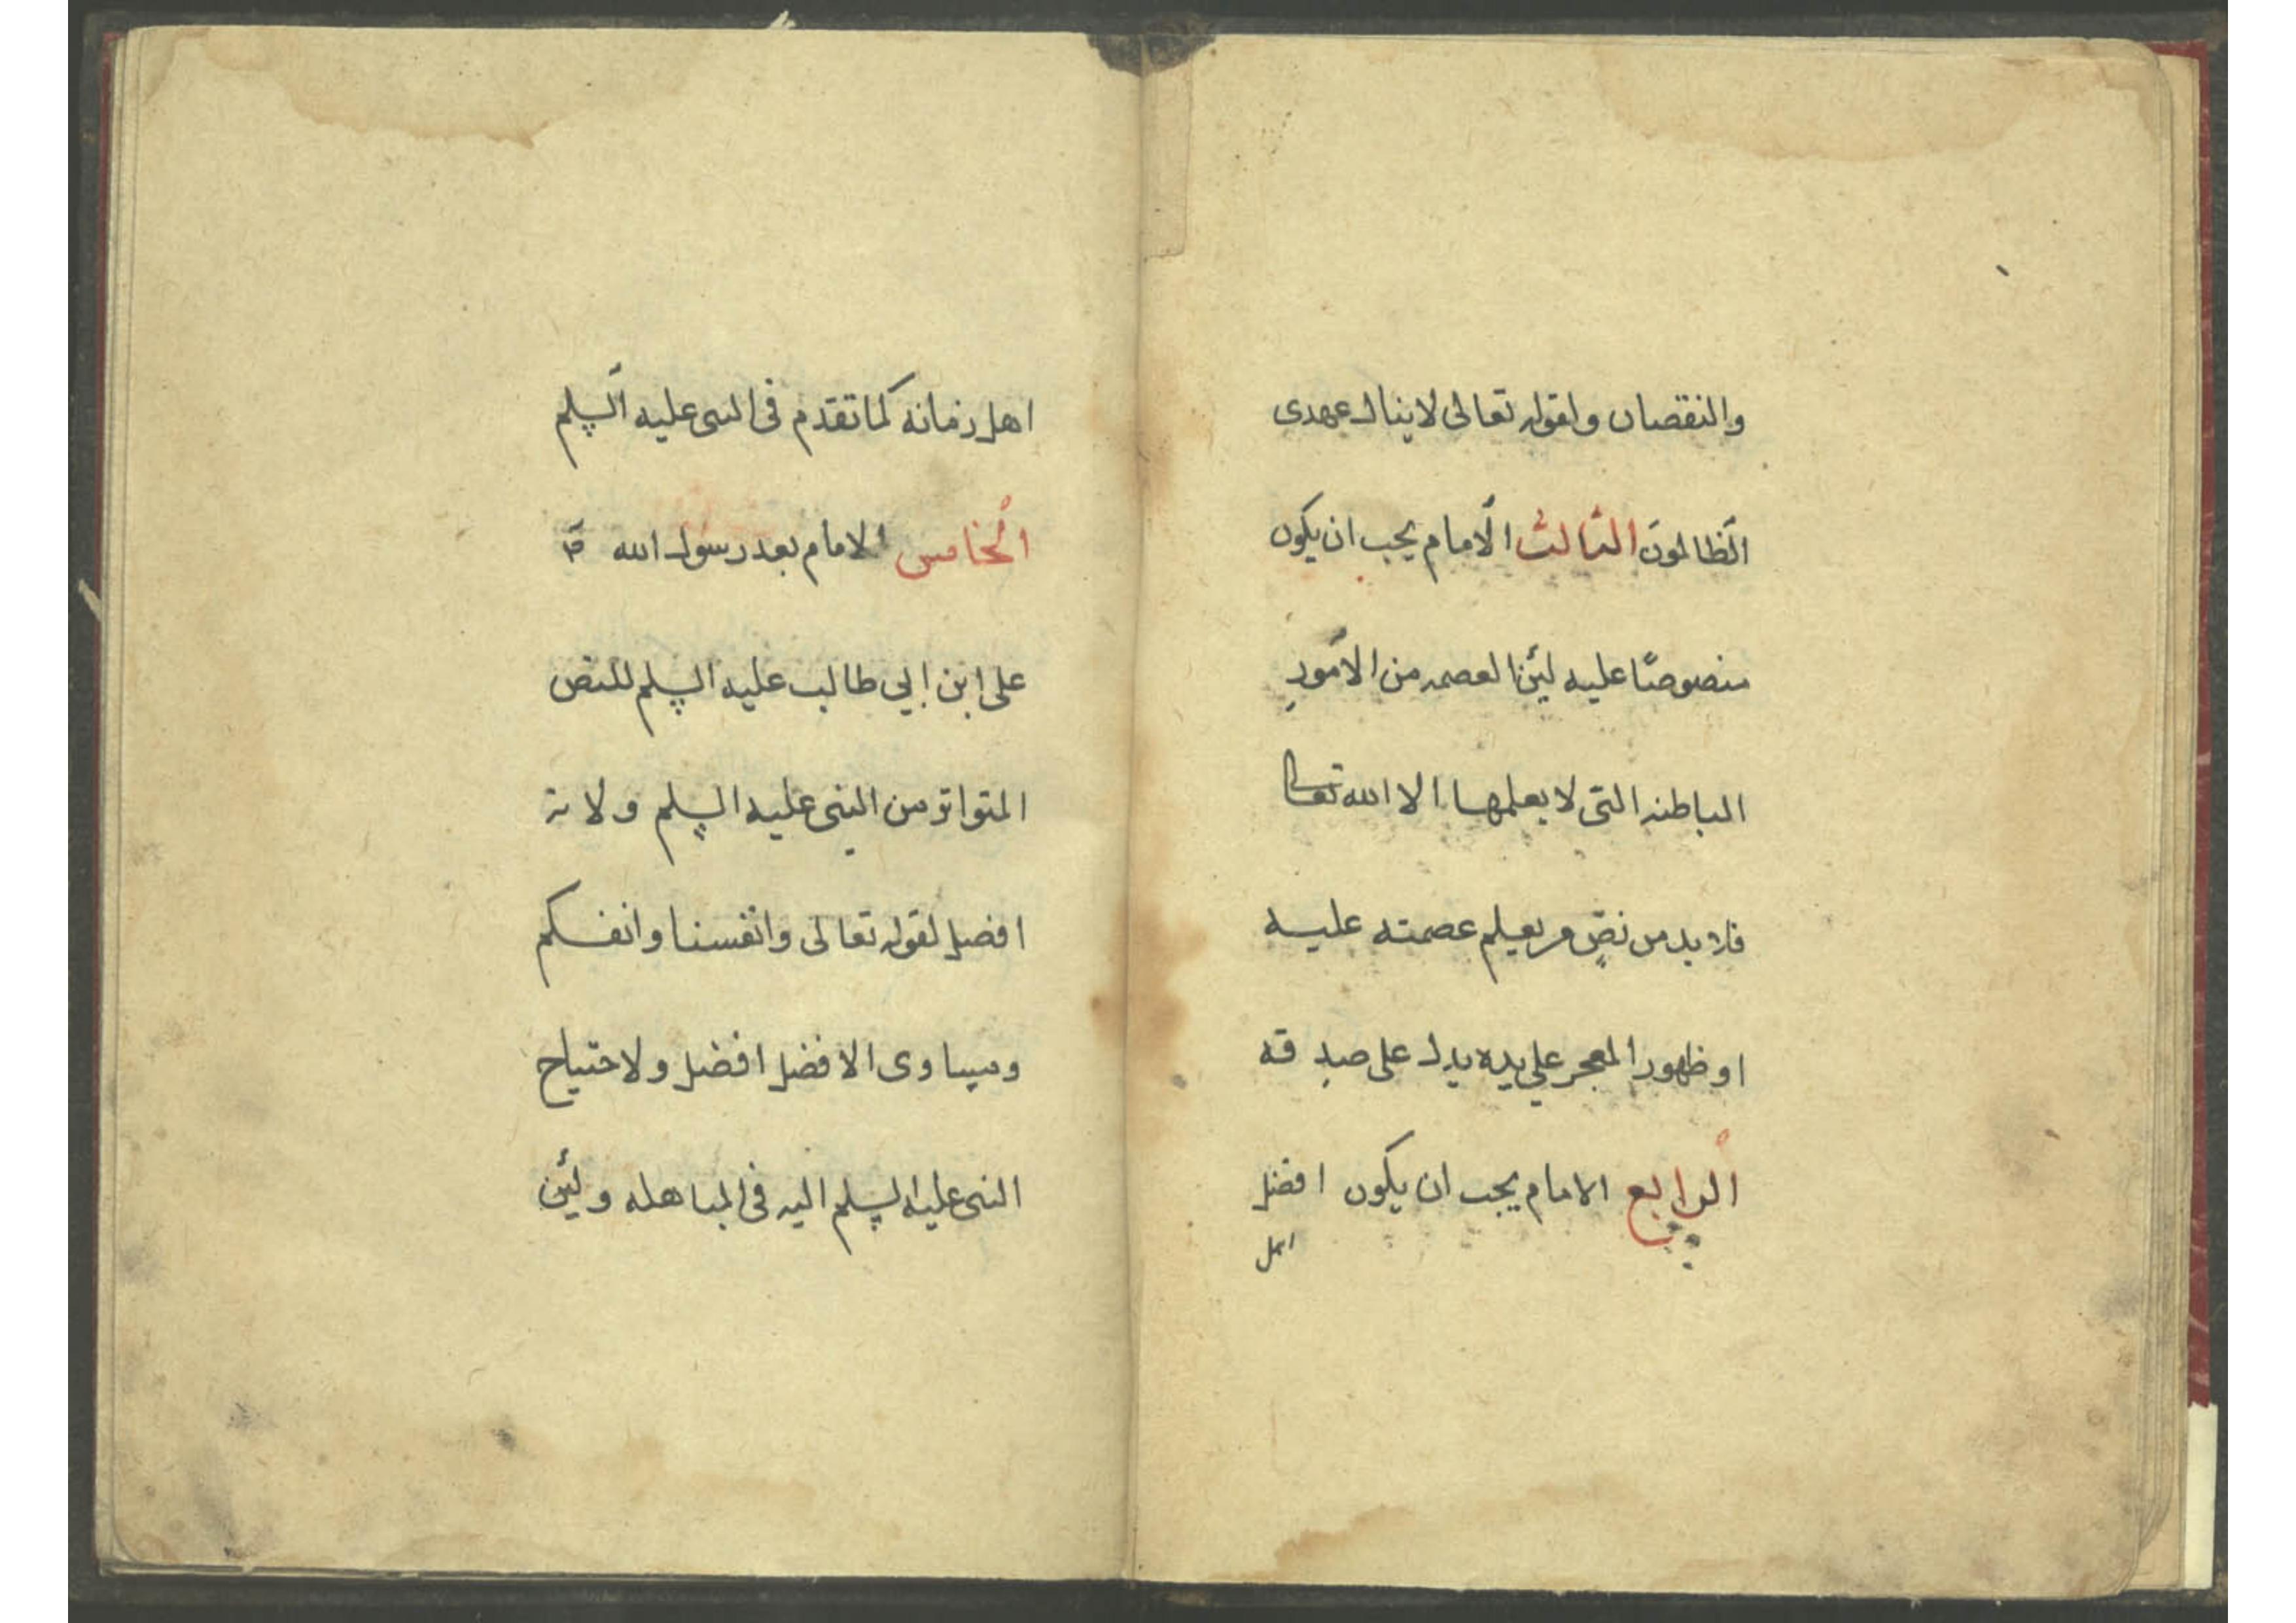 والنقصان ولقوله تعالى لا ينال عهدى
الظالمون الثالث الامام يجب ان يكون
منصوصًا عليه لئن العصمه من الامور
الباطنه التى لا يعلمها الا الله تعالى
فلا بد من نصٍ من يعلم عصمته عليه
او ظهور المعجز على يده يدل على صدقه
الرابع الامام يجب ان يكون افضل
اهل
اهل زمانه كما تقدم فى النبى عليه السلم
الخامس الامام بعد رسول الله ص
على ابن ابي طالب عليه السلم للنص
المتواتر من النبى عليه السلم ولانه
افضل لقوله تعالى وانفسنا وانفسكم
ومساوى الافضل افضل ولاحتياج
النبى عليه السلم اليه فى المباهله ولئن